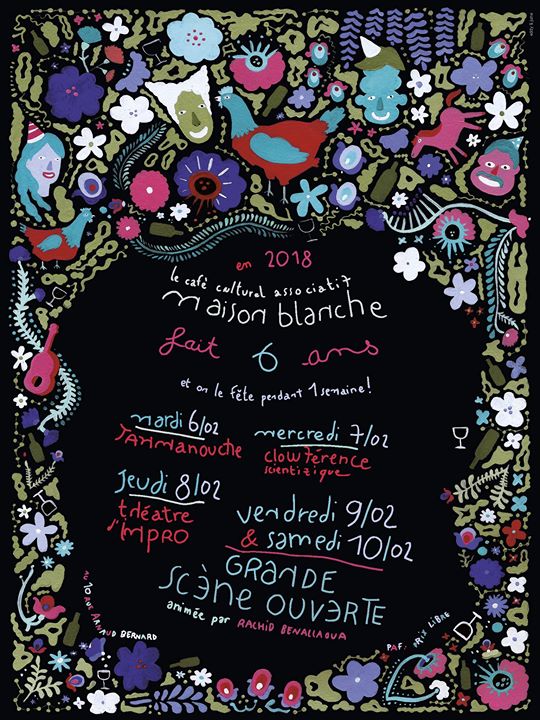 en 2018
le café cultural associatif
maison blanche
fait 6 ans
et on le fête pendant 1 semaine!
mardi 6/02
JAMmanouche
mercredi 7/02
clowférence
scientifique
jeudi 8/02
théatre
d'IMPRO
vendredi 9/02
& samedi 10/02
GRANDE
SCÈNE OUVERTE
animée par RACHID BENALLAOUA
au 10 rue ARNAUD BERNARD
PAF: PRIX LIBRE